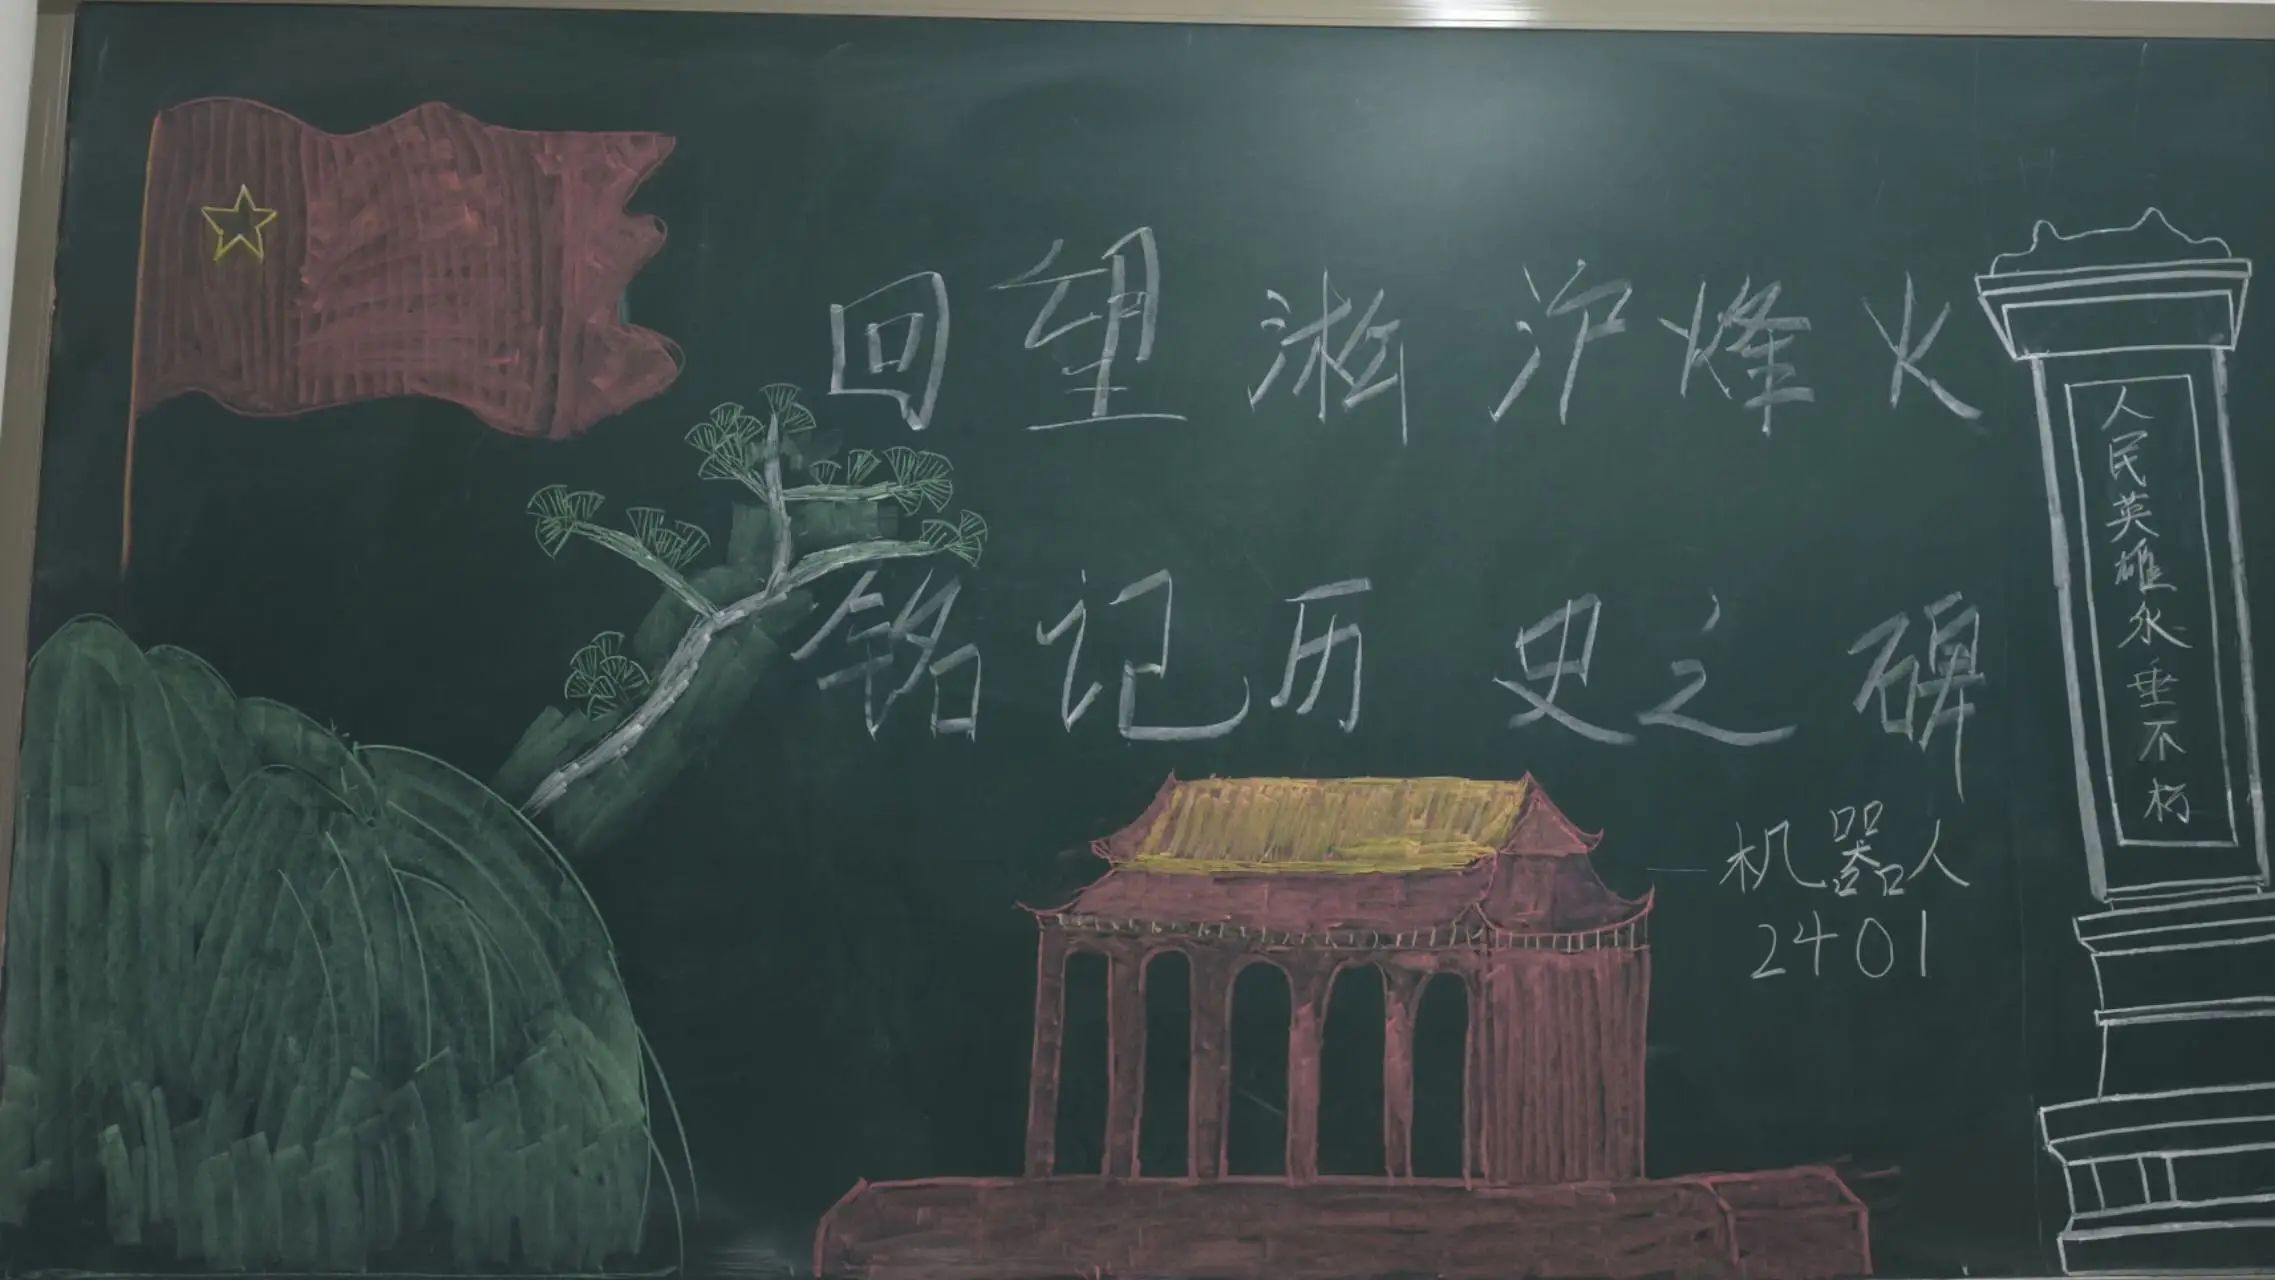 回望淞沪烽火
铭记历史之碑
一机器人
2401
人民英雄永垂不朽